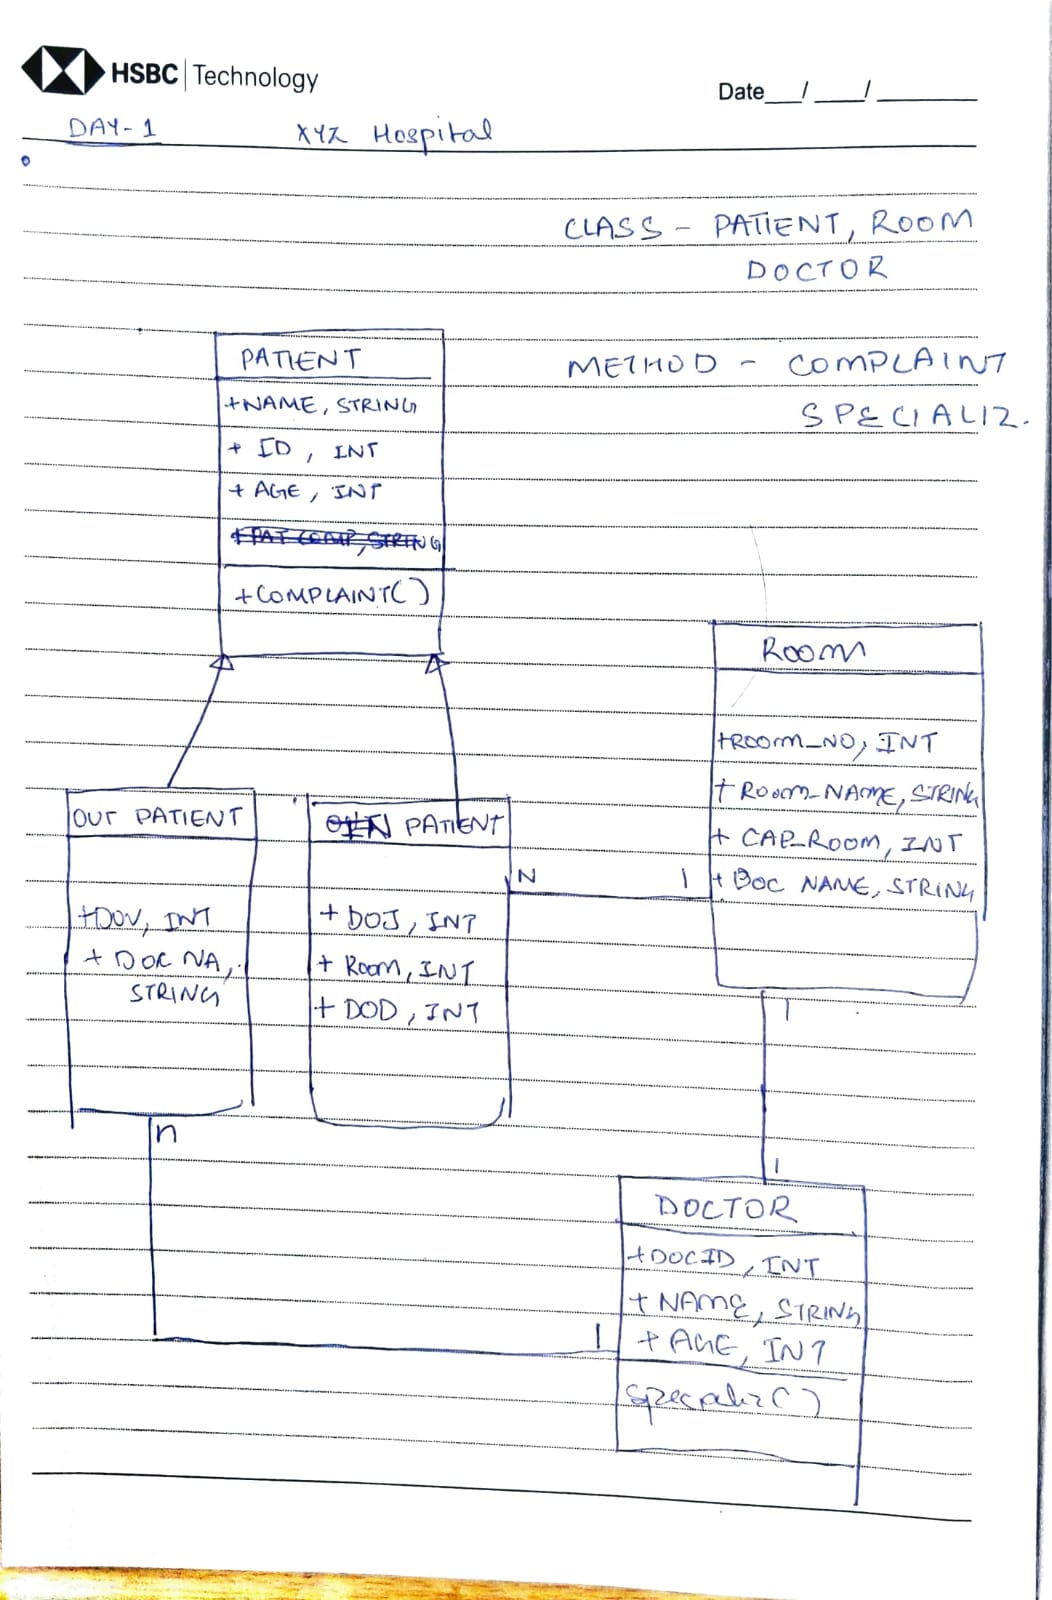 HSBC | Technology
Date__/___/______
DAY-1 XYZ Hospital
CLASS - PATIENT, ROOM
DOCTOR
METHOD - COMPLAINT
SPECIALIZ.
PATIENT
+NAME, STRING
+ ID, INT
+ AGE, INT
+PAT COMP, STRING
+COMPLAINT()
ROOM
+ROOM_NO, INT
+ ROOM_NAME, STRING
+ CAP_ROOM, INT
+ DOC NAME, STRING
OUT PATIENT
+DOV, INT
+ DOC NA,
STRING
IN PATIENT
+ DOJ, INT
+ ROOM, INT
+ DOD, INT
N 1
1
1
n
1
DOCTOR
+DOCID, INT
+ NAME, STRING
+ AGE, INT
Specializ()